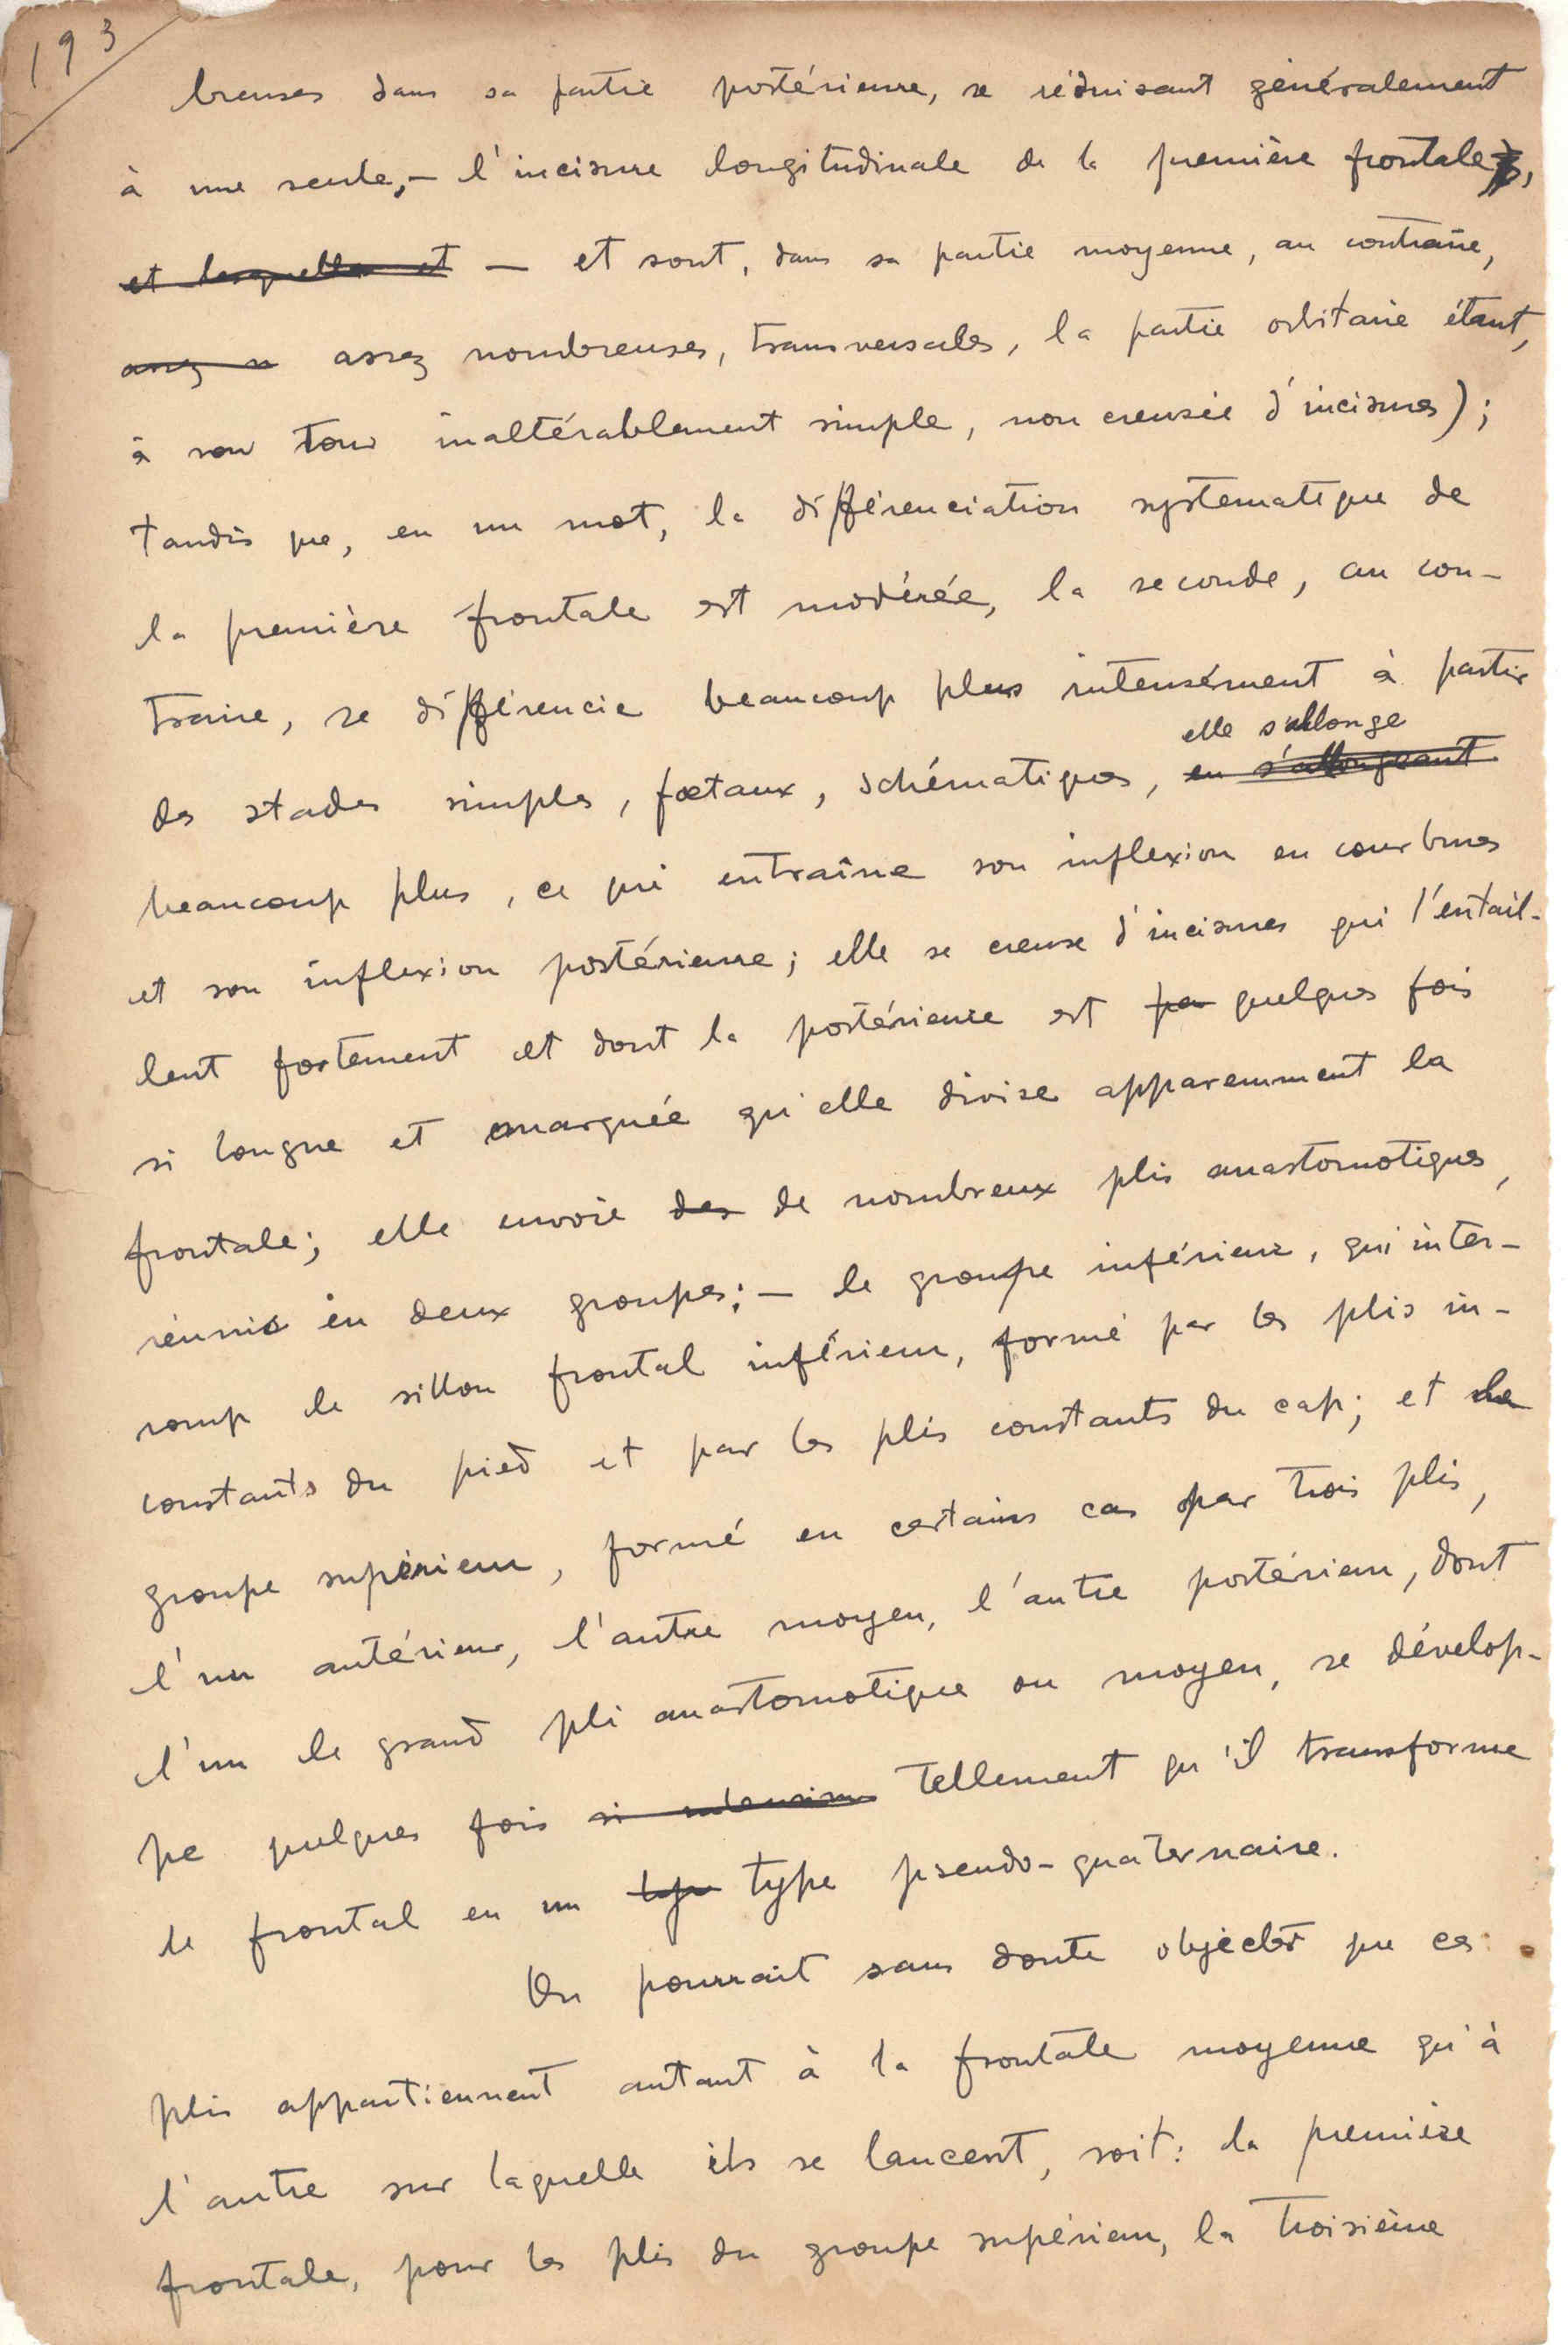 193
breuses dans sa partie postérieure, se réduisant généralement
à une seule, – l'incisure longitudinale de la première frontale,
et lesquelles et — et sont, dans sa partie moyenne, au contraire,
assez n assez nombreuses, transversales, la partie orbitaire étant,
à son tour inaltérablement simple, non creusée d'incisures);
tandis que, en un mot, la différenciation systematique de
la première frontale est modérée, la seconde, au con-
traire, se différencie beaucoup plus intensément à partir
elle s'allonge
des stades simples, fœtaux, schématiques, en s'allongeant
beaucoup plus, ce qui entraîne son inflexion en courbures
et son inflexion postérieure; elle se creuse d'incisures qui l'entail-
lent fortement et dont la postérieure est pa quelques fois
si longue et marquée qu'elle divise apparemment la
frontale; elle envoie des de nombreux plis anastomotiques,
réunis en deux groupes; – le groupe inférieur, qui inter-
romp le sillon frontal inférieur, formé par les plis in-
constants du pied et par les plis constants du cap; et le
groupe supérieur, formé en certains cas par trois plis,
l'un antérieur, l'autre moyen, l'autre postérieur, dont
l'un le grand pli anastomotique ou moyen, se dévelop-
pe quelques fois si tellement qu'il transforme
le frontal en un type type pseudo-quaternaire.
On pourrait sans doute objecter que ces
plis appartiennent autant à la frontale moyenne qu'à
l'autre sur laquelle ils se lancent, soit: la première
frontale, pour les plis du groupe supérieur, la troisième